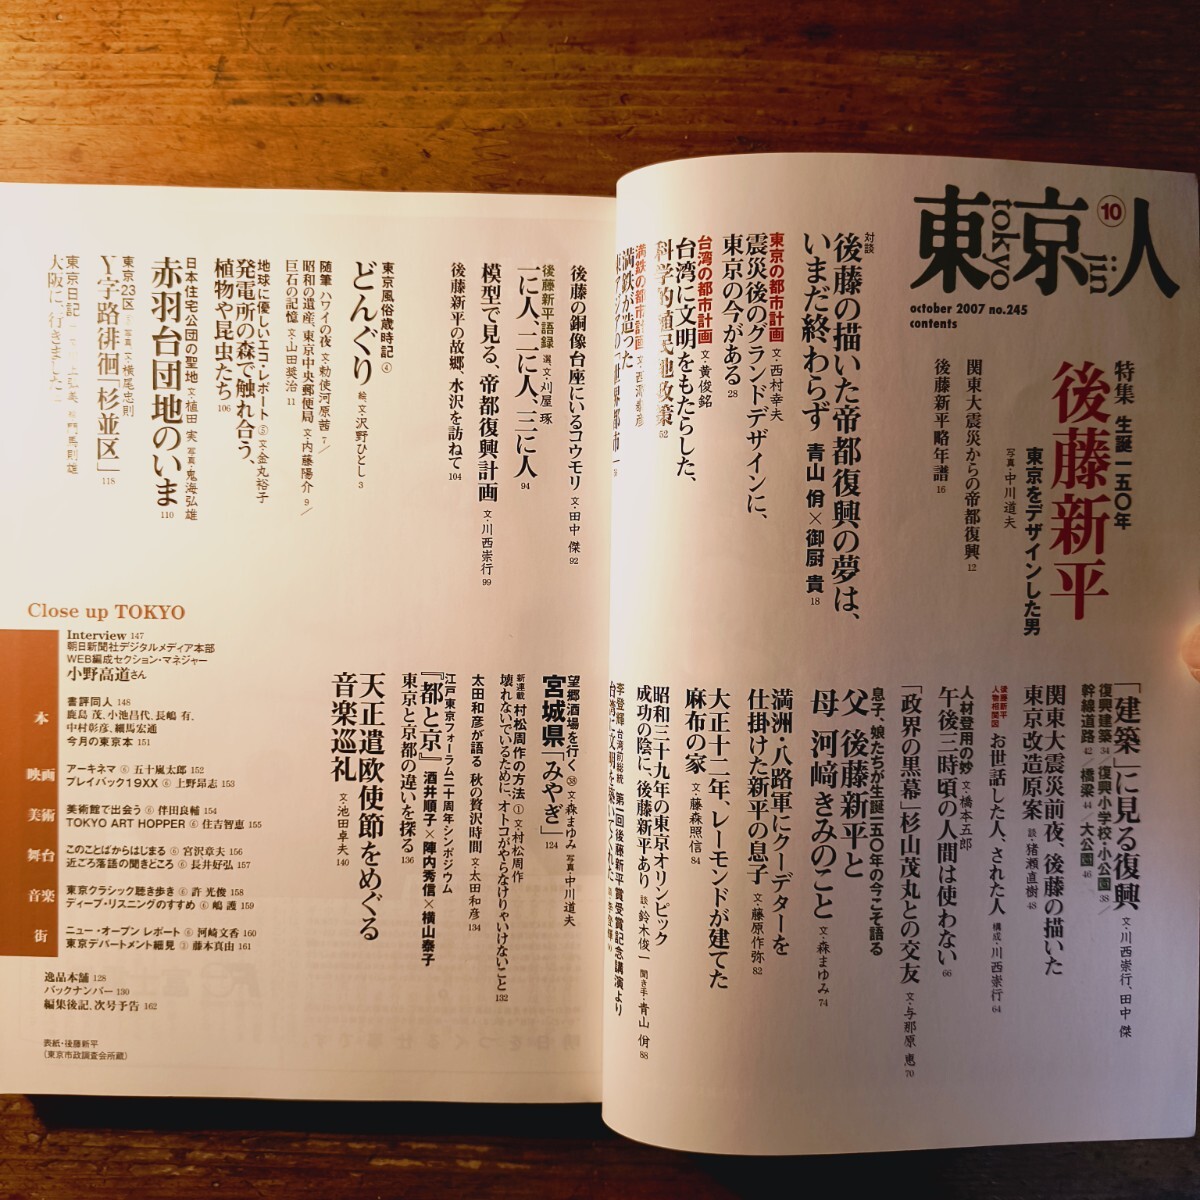 東京人
tokyo
jin
10
october 2007 no.245
contents
特集 生誕一五〇年
後藤新平
東京をデザインした男
写真・中川道夫
関東大震災からの帝都復興 12
後藤新平略年譜 16
対談
後藤の描いた帝都復興の夢は、
いまだ終わらず 青山 佾×御厨 貴 18
東京の都市計画 文・西村幸夫
震災後のグランドデザインに、
東京の今がある 28
台湾の都市計画 文・黄俊銘
台湾に文明をもたらした、
科学的植民地政策 52
満鉄の都市計画 文・西澤泰彦
満鉄が造った
「建築」に見る復興 文・川西崇行、田中 傑
復興建築 34/復興小学校・小公園 38/
幹線道路 42/橋梁 44/大公園 46
関東大震災前夜、後藤の描いた
東京改造原案 談・猪瀬直樹 48
後藤新平
人物相関図 お世話した人、された人 構成・川西崇行 64
人材登用の妙 文・橋本五郎
午後三時頃の人間は使わない 66
「政界の黒幕」杉山茂丸との交友 文・与那原 恵 70
息子、娘たちが生誕一五〇年の今こそ語る
父 後藤新平と
母 河﨑きみのこと 文・森まゆみ 74
満洲・八路軍にクーデターを
仕掛けた新平の息子 文・藤原作弥 82
大正十二年、レーモンドが建てた
麻布の家 文・藤森照信 84
昭和三十九年の東京オリンピック
成功の陰に、後藤新平あり 談・鈴木俊一 聞き手・青山 佾 88
李登輝 台湾前総統 第一回後藤新平賞受賞記念講演より
後藤の銅像台座にいるコウモリ 文・田中 傑 92
後藤新平語録 選・文・刈屋 琢
一に人、二に人、三に人 94
模型で見る、帝都復興計画 文・川西崇行 99
後藤新平の故郷、水沢を訪ねて 104
東京風俗歳時記 ④
どんぐり 絵・文・沢野ひとし 3
随筆 ハワイの夜 文・勅使河原茜 7/
昭和の遺産、東京中央郵便局 文・内藤陽介 9/
巨石の記憶 文・山田奨治 11
地球に優しいエコ・レポート ⑤ 文・金丸裕子
発電所の森で触れ合う、
植物や昆虫たち 106
日本住宅公団の聖地 文・植田 実 写真・鬼海弘雄
赤羽台団地のいま 110
東京23区 写真・文・横尾忠則
Y字路徘徊「杉並区」 118
東京日記
大阪に、行きました
望郷酒場を行く ㊳ 文・森まゆみ 写真・中川道夫
宮城県「みやぎ」 124
新連載 村松周作の方法 ① 文・村松周作
壊れないでいるために、オトコがやらなけりゃいけないこと 132
太田和彦が語る 秋の贅沢時間 文・太田和彦 134
江戸東京フォーラム二十周年シンポジウム
『都と京』 酒井順子×陣内秀信×横山泰子
東京と京都の違いを探る 136
天正遣欧使節をめぐる
音楽巡礼 文・池田卓夫 140
Close up TOKYO
Interview 147
朝日新聞社デジタルメディア本部
WEB編成セクション・マネジャー
小野高道さん
本
書評同人 148
鹿島 茂、小池昌代、長嶋 有、
中村彰彦、細馬宏通
今月の東京本 151
映画
アーキネマ ⑥ 五十嵐太郎 152
プレイバック19XX ⑥ 上野昂志 153
美術
美術館で出会う ⑥ 伴田良輔 154
TOKYO ART HOPPER ⑥ 住吉智恵 155
舞台
このことばからはじまる ⑥ 宮沢章夫 156
近ごろ落語の聞きどころ ⑥ 長井好弘 157
音楽
東京クラシック聴き歩き ⑥ 許 光俊 158
ディープ・リスニングのすすめ ⑥ 嶋 護 159
街
ニュー・オープン レポート ⑥ 河崎文香 160
東京デパートメント細見 ③ 藤本真由 161
逸品本舗 128
バックナンバー 130
編集後記、次号予告 162
表紙・後藤新平
（東京市政調査会所蔵）